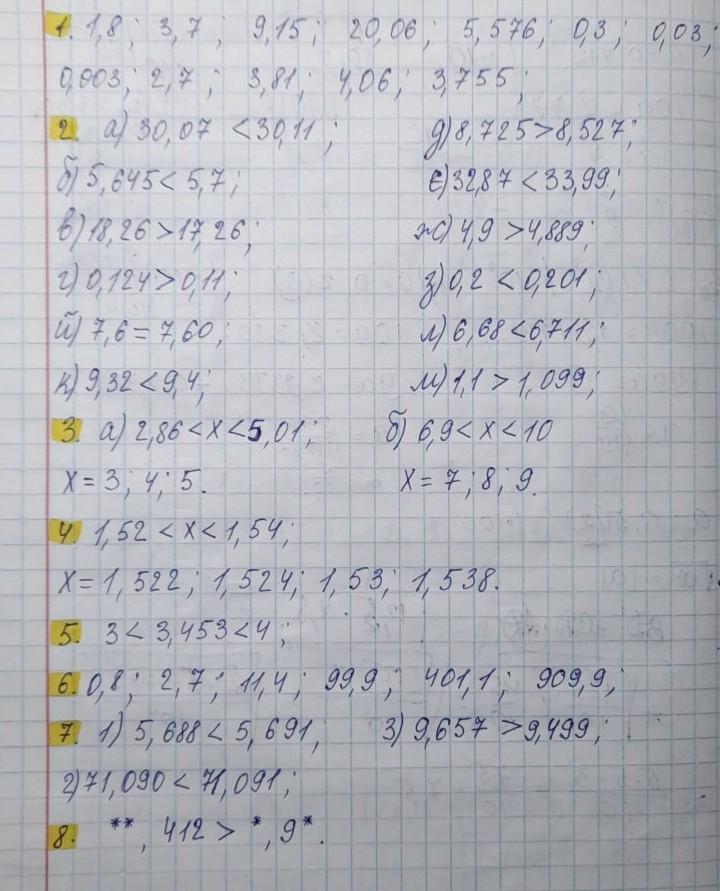 1. 1,8; 3,7; 9,15; 20,06; 5,576; 0,3; 0,03;
0,003; 2,7; 3,81; 4,06; 3,755;
2. а) 30,07 < 30,11; д) 8,725 > 8,527;
б) 5,645 < 5,7; є) 32,87 < 33,99;
в) 18,26 > 17,26; ж) 4,9 > 4,889;
г) 0,124 > 0,11; з) 0,2 < 0,201;
й) 7,6 = 7,60; л) 6,68 < 6,711;
к) 9,32 < 9,4; м) 1,1 > 1,099;
3. а) 2,86 < x < 5,01; б) 6,9 < x < 10
x = 3; 4; 5. x = 7; 8; 9.
4. 1,52 < x < 1,54;
x = 1,522; 1,524; 1,53; 1,538.
5. 3 < 3,453 < 4;
6. 0,8; 2,7; 11,4; 99,9; 401,1; 909,9;
7. 1) 5,688 < 5,691; 3) 9,657 > 9,499;
2) 71,090 < 71,091;
8. **,412 > *,9*.